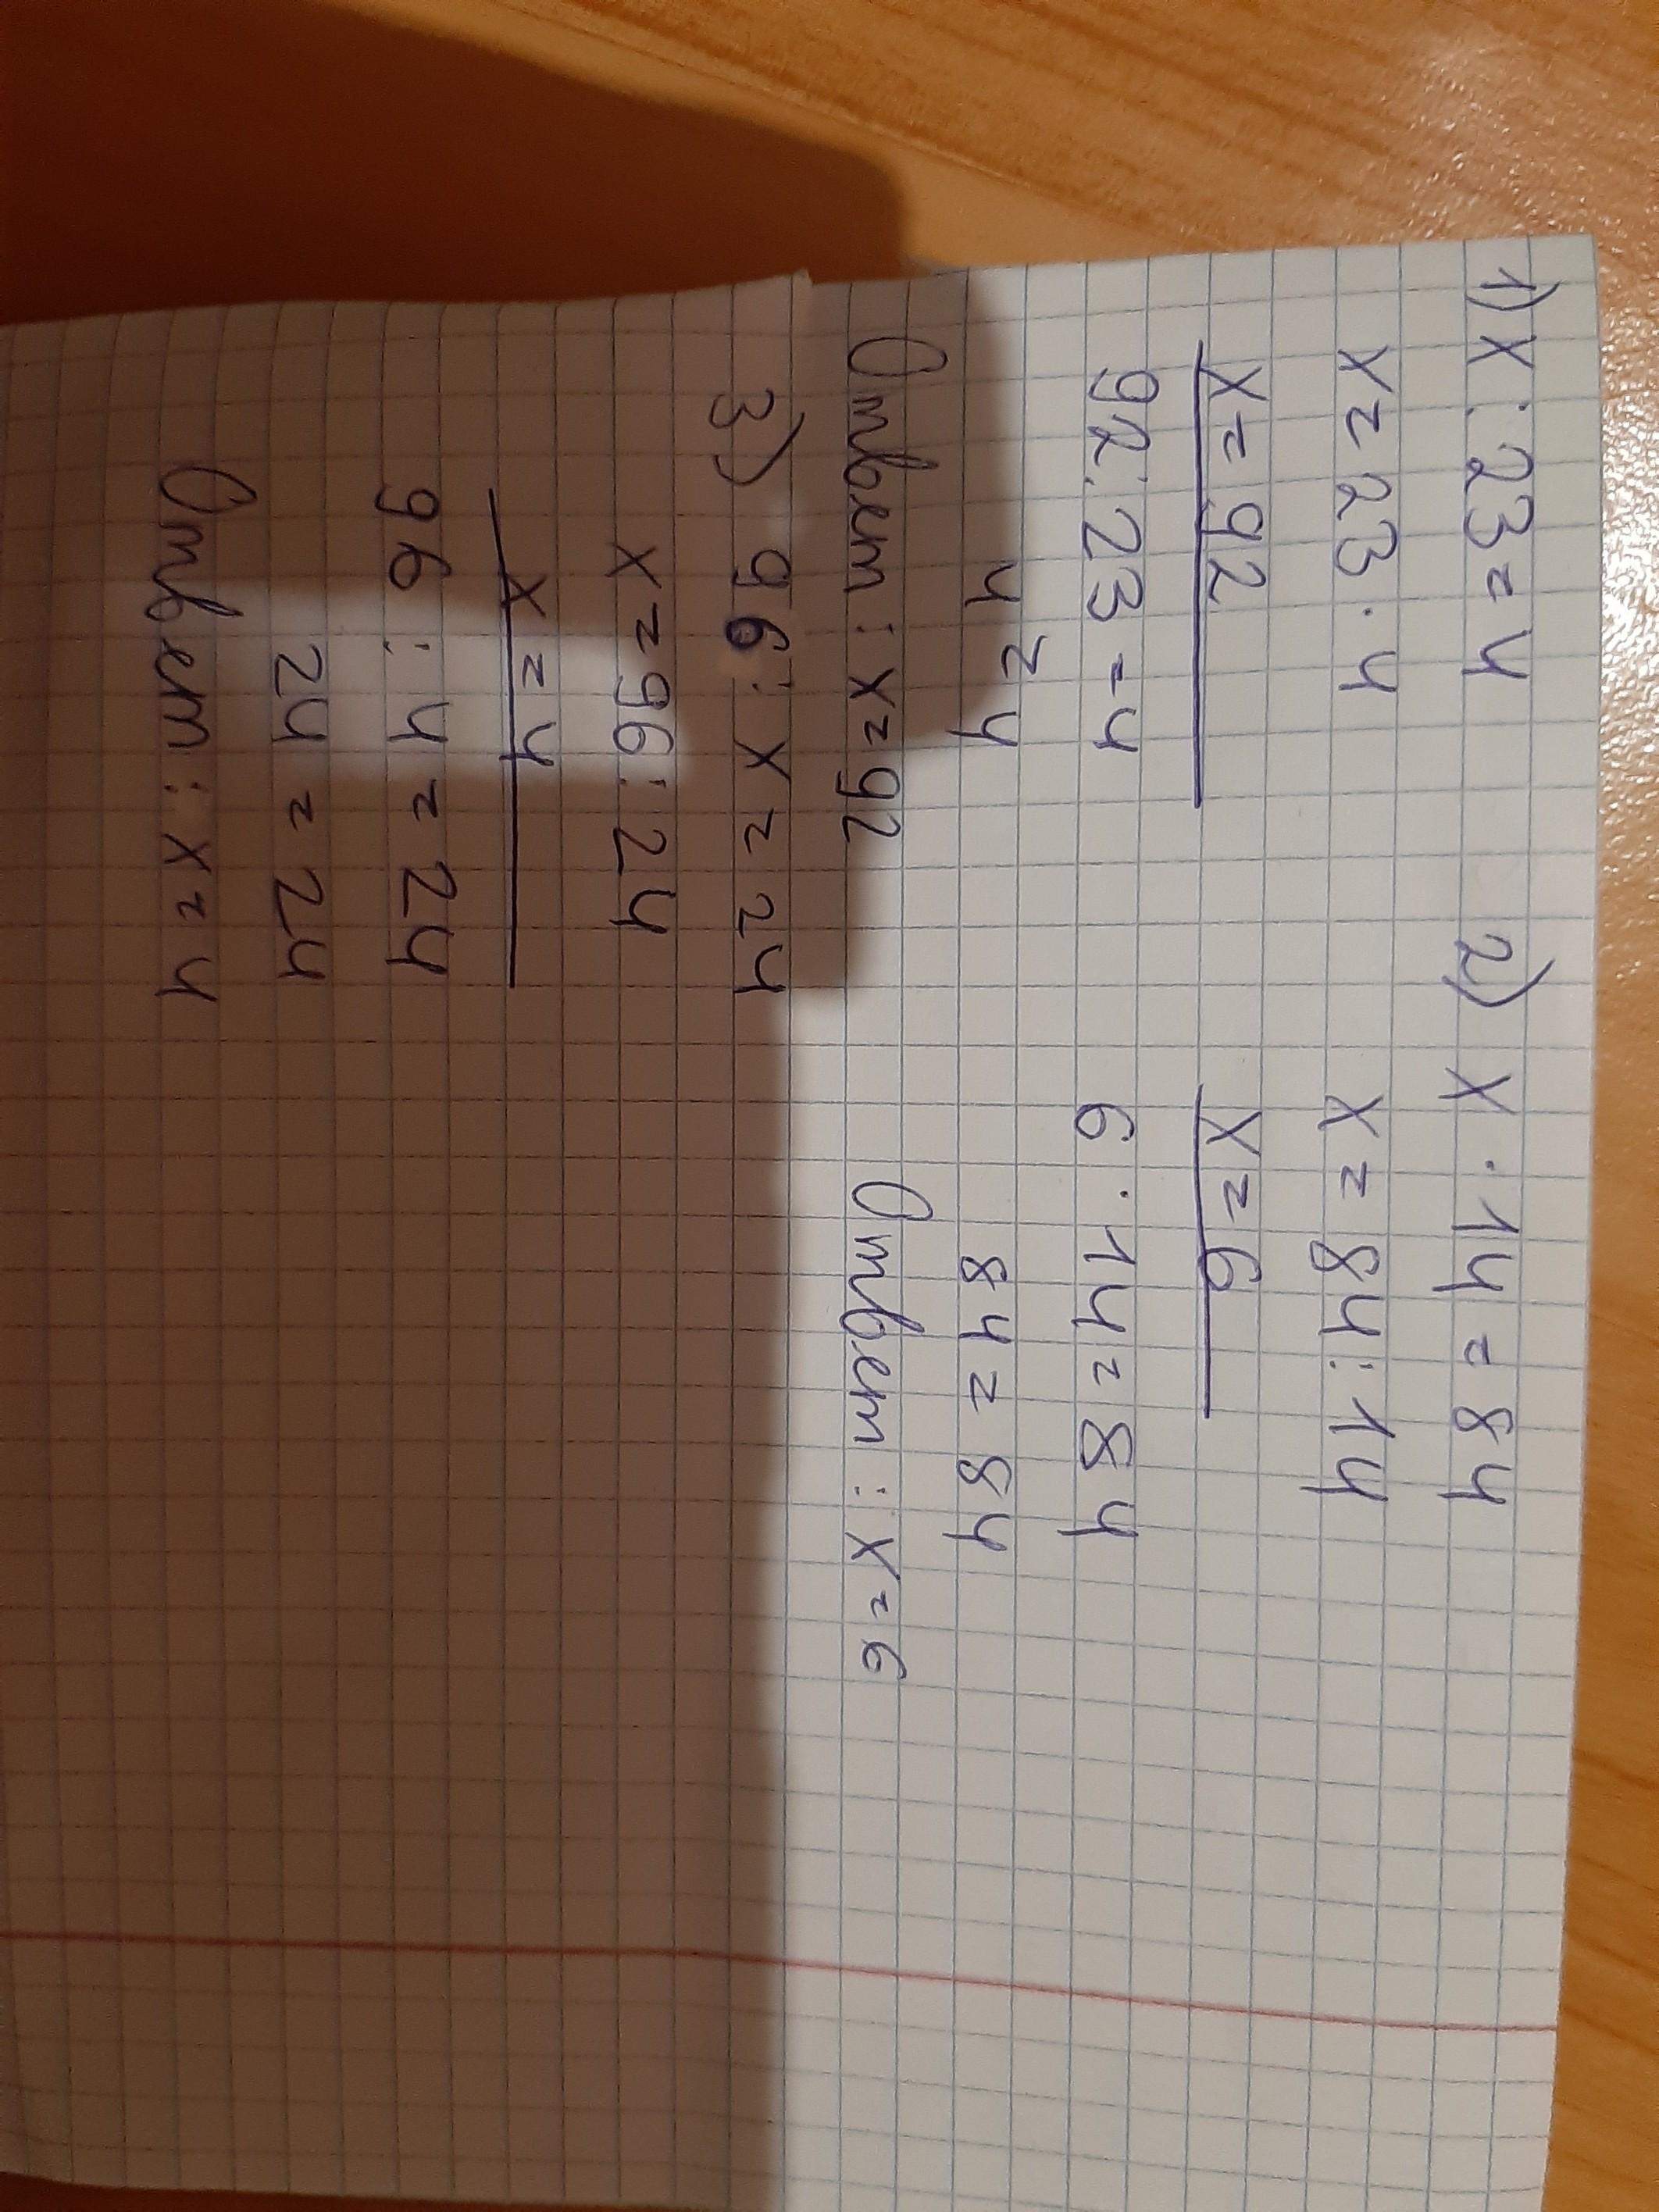 1) x : 23 = 4
x = 23 · 4
x = 92
92 : 23 = 4
4 = 4
Ответ : x = 92
2) x · 14 = 84
x = 84 : 14
x = 6
6 · 14 = 84
84 = 84
Ответ : x = 6
3) 96 : x = 24
x = 96 : 24
x = 4
96 : 4 = 24
24 = 24
Ответ : x = 4